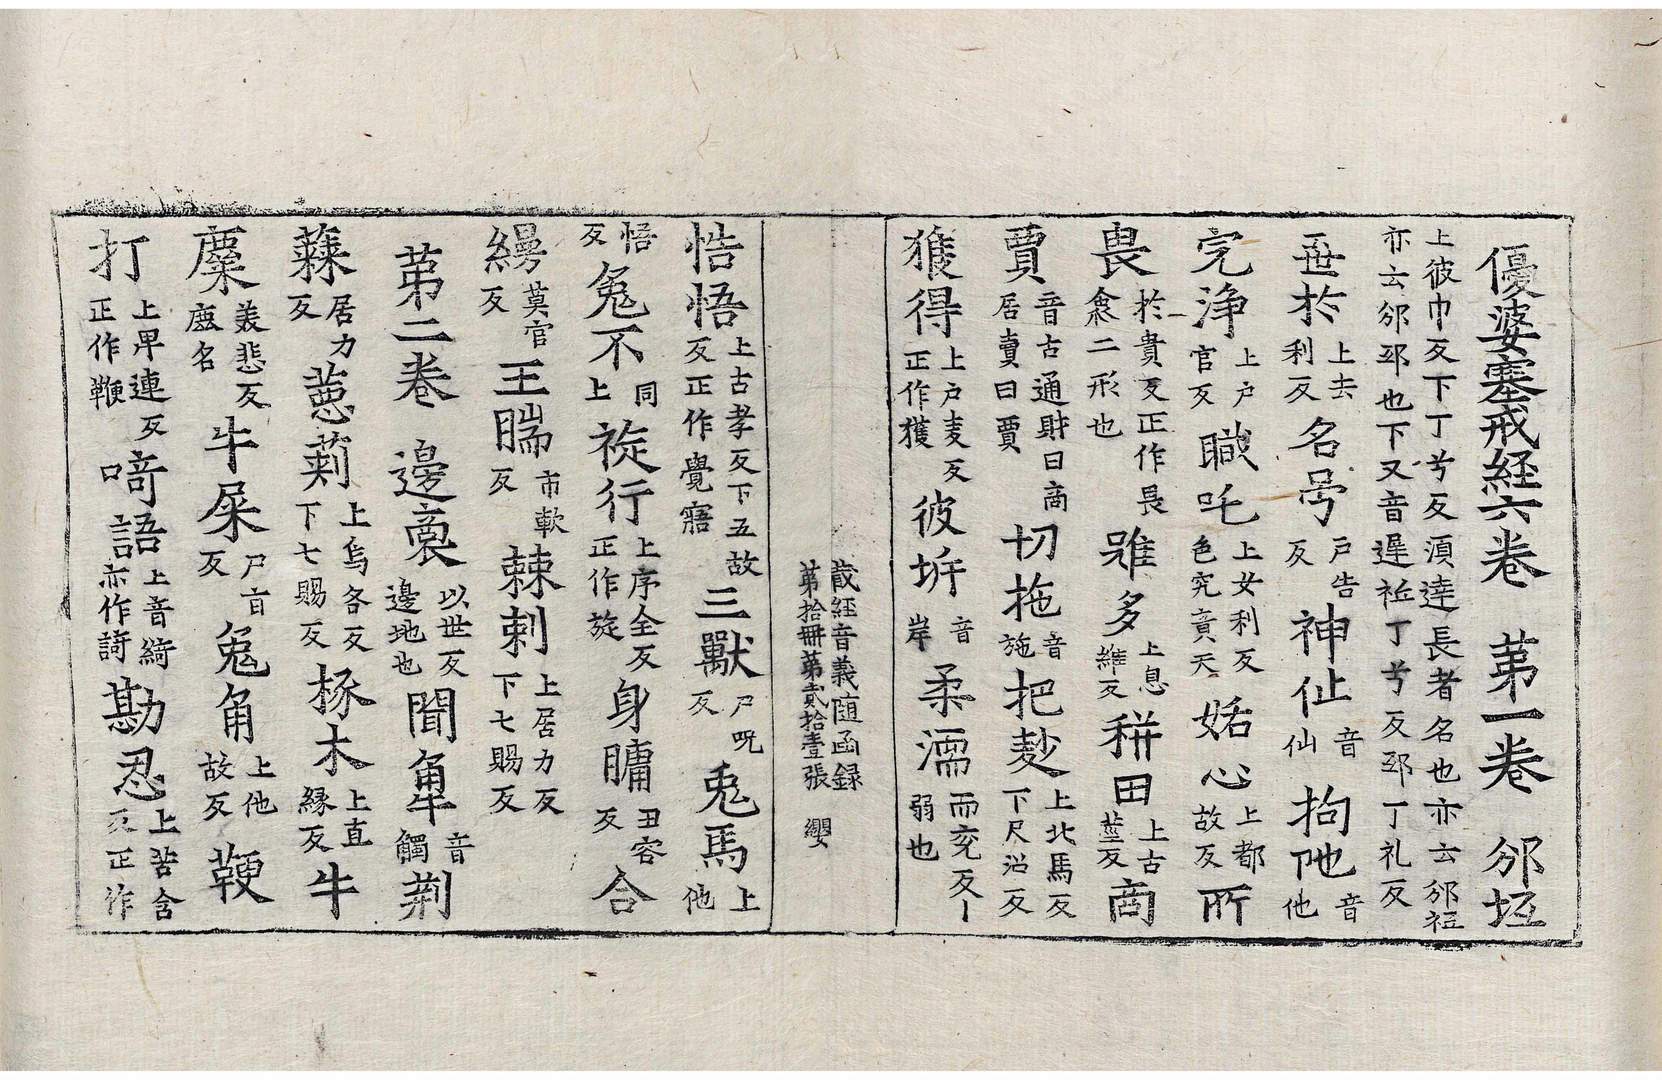 優婆塞戒経六巻 第一巻 邠坻
上彼巾反下丁兮反湏達長者名也亦云邠𥘡
亦云邠邳也下又音遲𥘡丁兮反邳丁礼反
䒶於上去利反名号戸告反神仙音仙拘阤音他
完淨上戸官反職吒上女利反色究竟天妬心上都故反所
畏於貴反正作畏𩇕二形也雖多上息維反秤田上古莖反商
賈音古通財曰商居賣曰賈切拖音施把麨上北馬反下尺沼反
獲得上戸麦反正作獲彼㟁音岸柔濡而兖反丨弱也
蔵経音義随函録
第拾冊第貳拾壹張 纓
悎悟上古孝反下五故反正作覺寤三獸尸呪反兎馬上他
悟反兔不同上䘵行上序全反正作旋身𦟛丑容反合
縵莫官反王腨市軟反棘刺上居力反下七賜反
第二巻 邊裔以世反邊地也聞𧢲音觸荆
蕀居力反蒽莿上烏各反下七賜反椓木上直縁反牛
麋美悲反鹿名牛屎尸旨反兔角上他故反鞕
打上卑連反正作鞭㗨語上音綺亦作𧪰勘忍上苦含反正作